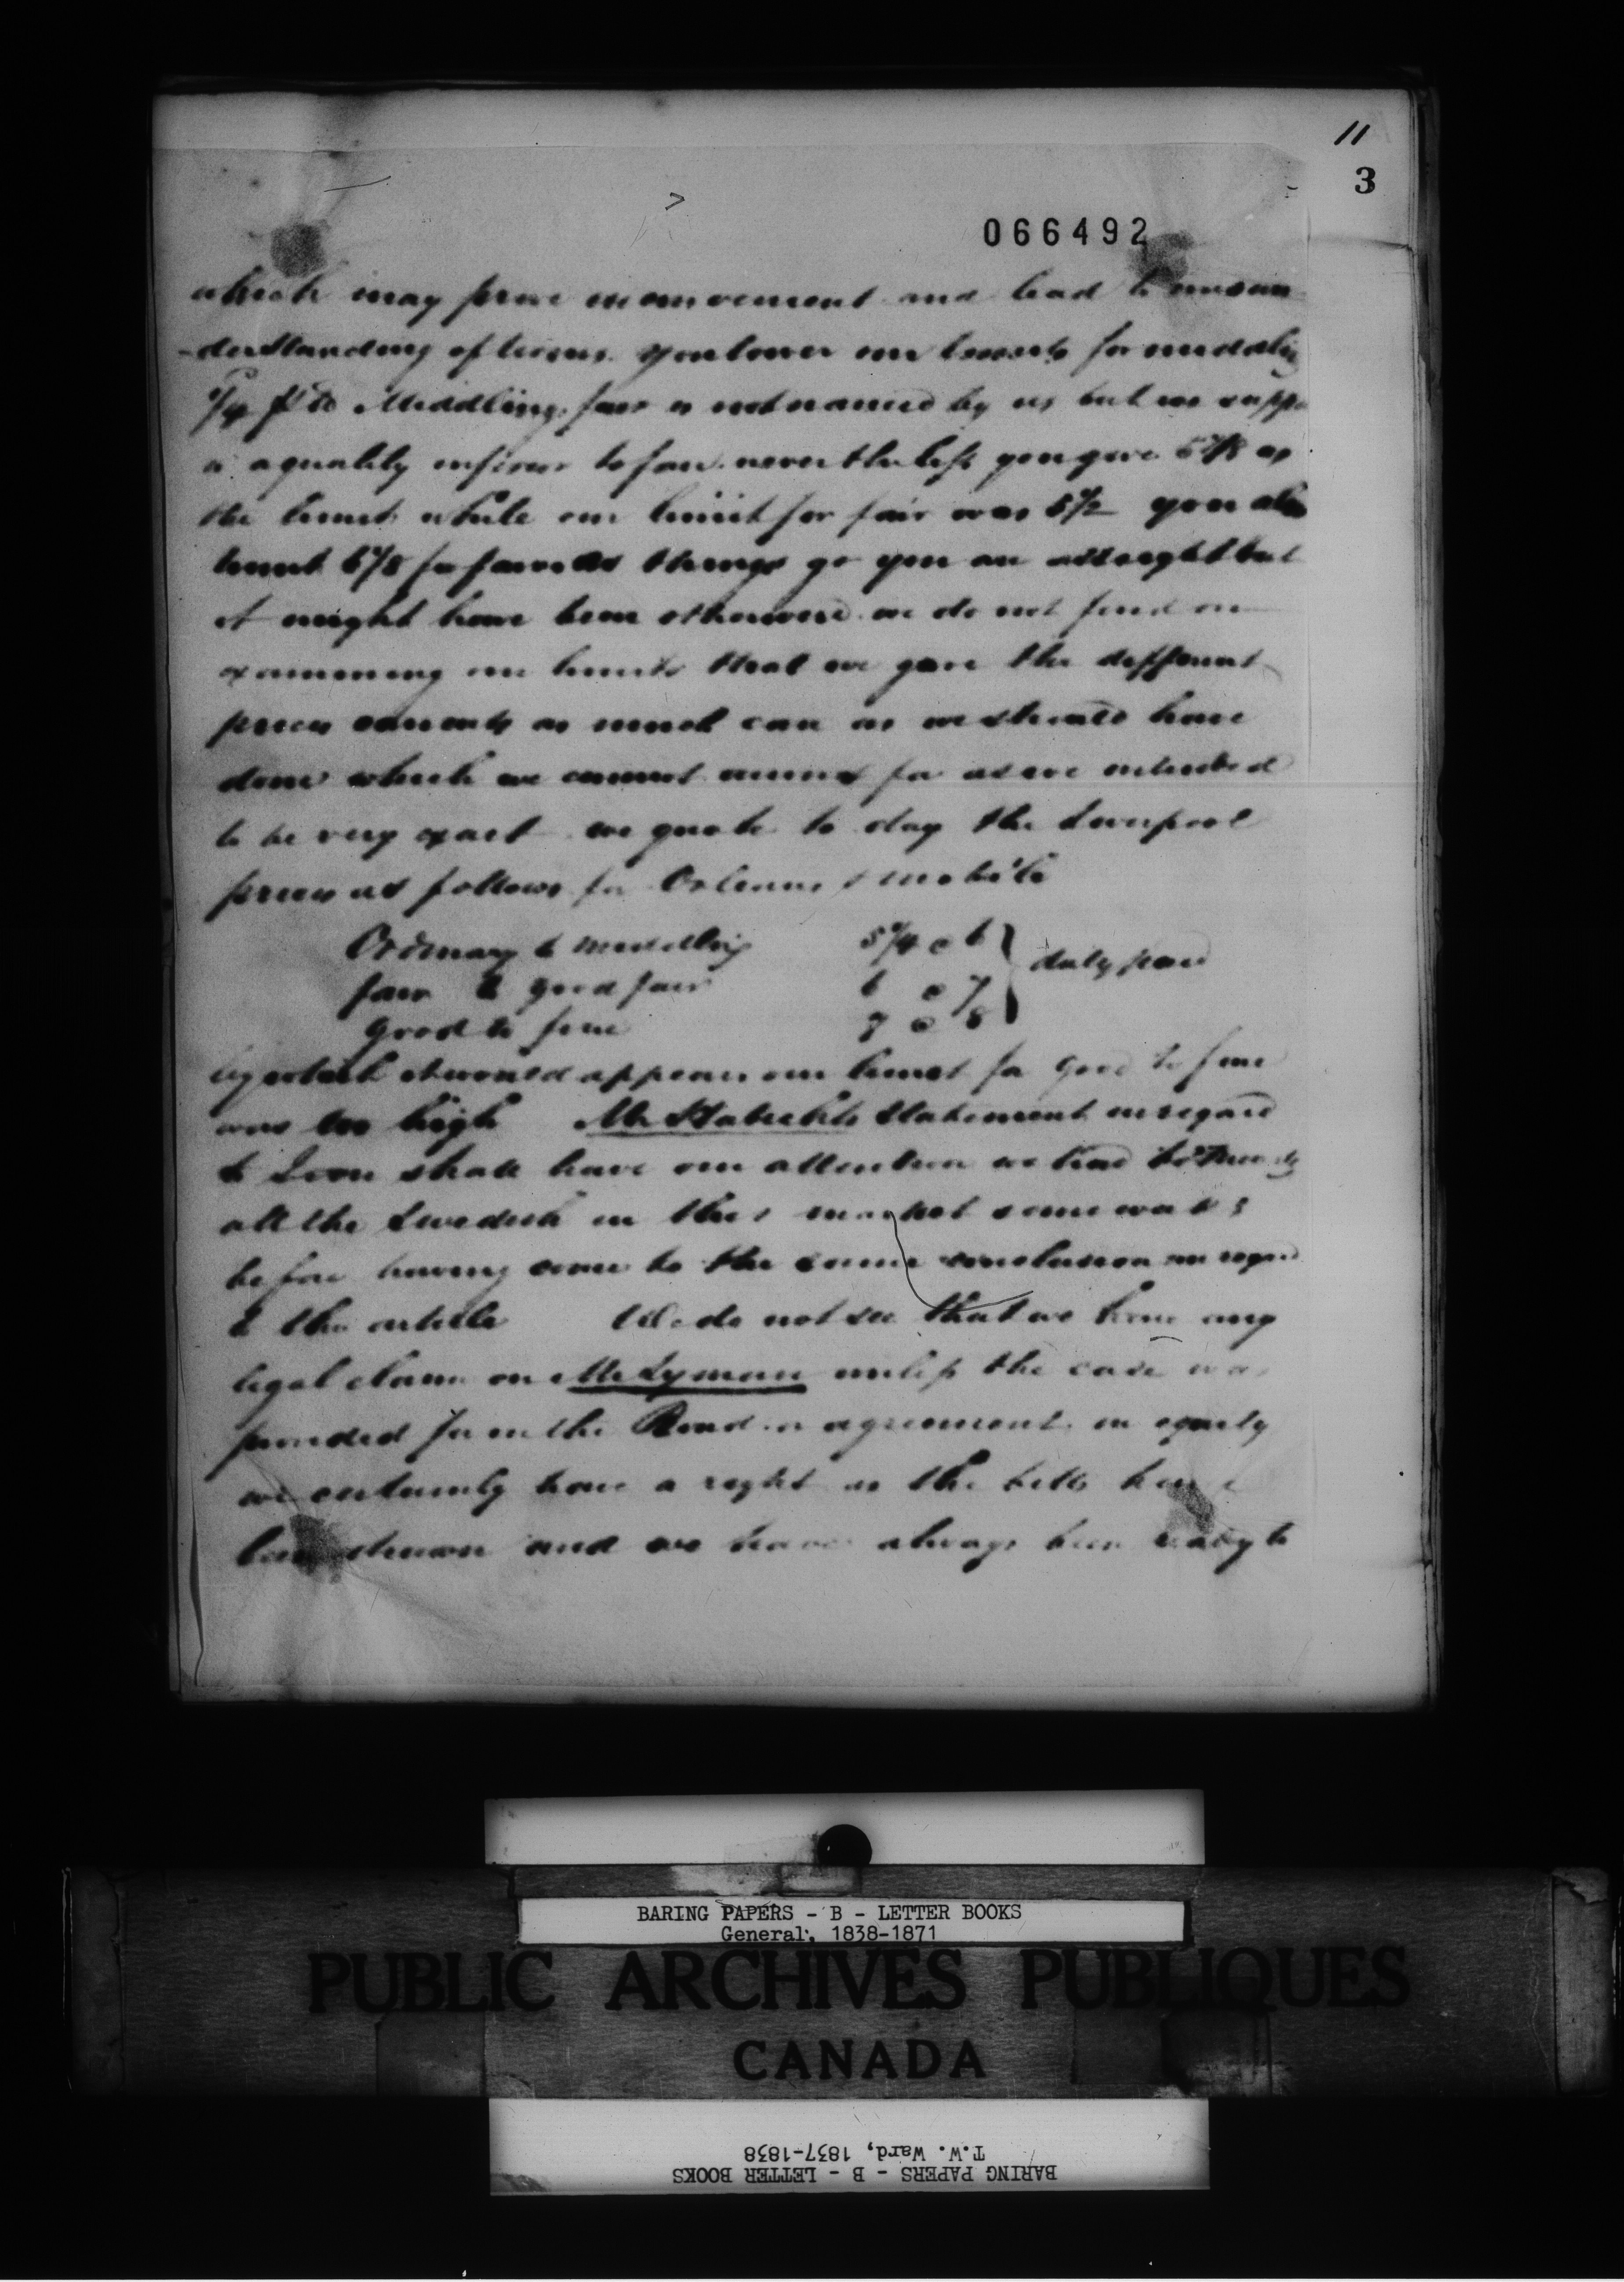 11
3
066492
which may prove inconvenient and lead to misun
-derstanding of terms. you lower our limits for middling
1/4 Middling fair is not named by us but we
a quality inferior to fair nevertheless you give 5 7/8 as
the limit while our limit for fair was 5 1/2 you also
limit 6 1/8 for fair as things go you are all right but
it might have been otherwise we do not find on
examining our limits that we gave the different
prices currents as much care as we should have
done which we cannot account for as we intended
to be very exact we quote to day the Liverpool
prices as follows for Orleans & Mobile
Ordinary to middling 5 1/4 @ 6
fair to good fair 6 @ 7 } duty paid
good to fine 7 @ 8
by which it would appear our limit for good to fine
was too high Mr Habichts statement in regard
to Iron shall have our attention we
all the Swedish in this market some weeks
before having come to the same conclusion in regard
to the article We do not see that we have any
legal claim on Mr Lyman unless the case was
provided for in the Bond or agreement. in equity
we certainly have a right as the bills have
been drawn and we have always been ready to
BARING PAPERS - B - LETTER BOOKS
General, 1838-1871
PUBLIC ARCHIVES PUBLIQUES
CANADA
BARING PAPERS - B - LETTER BOOKS
T.W. Ward, 1837-1838